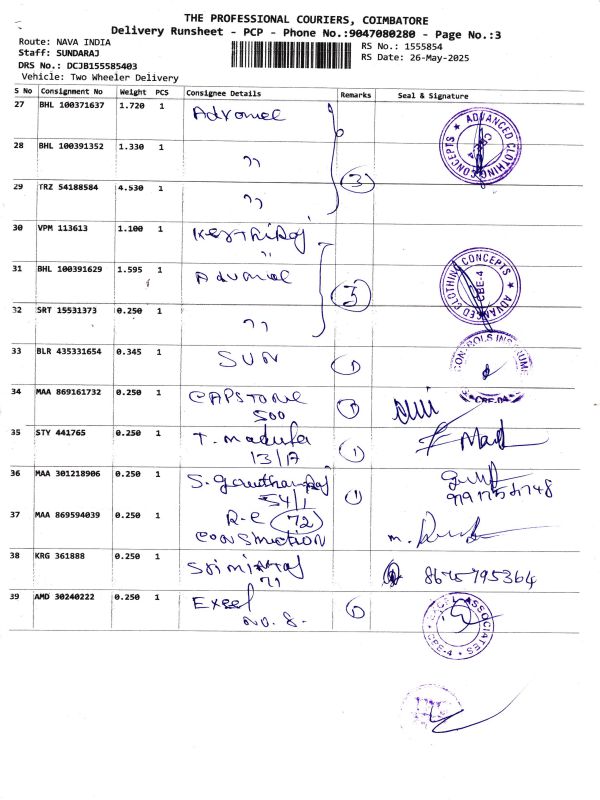 THE PROFESSIONAL COURIERS, COIMBATORE
Delivery Runsheet - PCP - Phone No.:9047080280 - Page No.:3
Route: NAVA INDIA
RS No.: 1555854
Staff: SUNDARAJ
RS Date: 26-May-2025
DRS No.: DCJB155585403
Vehicle: Two Wheeler Delivery
S No Consignment No Weight PCS Consignee Details Remarks Seal & Signature
27 BHL 100371637 1.720 1
ADVANCED CLOTHING CONCEPTS
28 BHL 100391352 1.330 1 "
29 TRZ 54188584 4.530 1 " 3
30 VPM 113613 1.100 1
31 BHL 100391629 1.595 1
ADVANCED CLOTHING CONCEPTS CBE-4
32 SRT 15531373 0.250 1 "
33 BLR 435331654 0.345 1 SUN 1
34 MAA 869161732 0.250 1 CAPSTONE 1
500
35 STY 441765 0.250 1 T. 1
13/A
36 MAA 301218906 0.250 1 S. 1
54/1
37 MAA 869594039 0.250 1 R.C 72
CONSTRUCTION
38 KRG 361888 0.250 1 8675795364
71
39 AMD 30240222 0.250 1 Excel 1
NO. 8.
EXCEL ASSOCIATES CBE-4